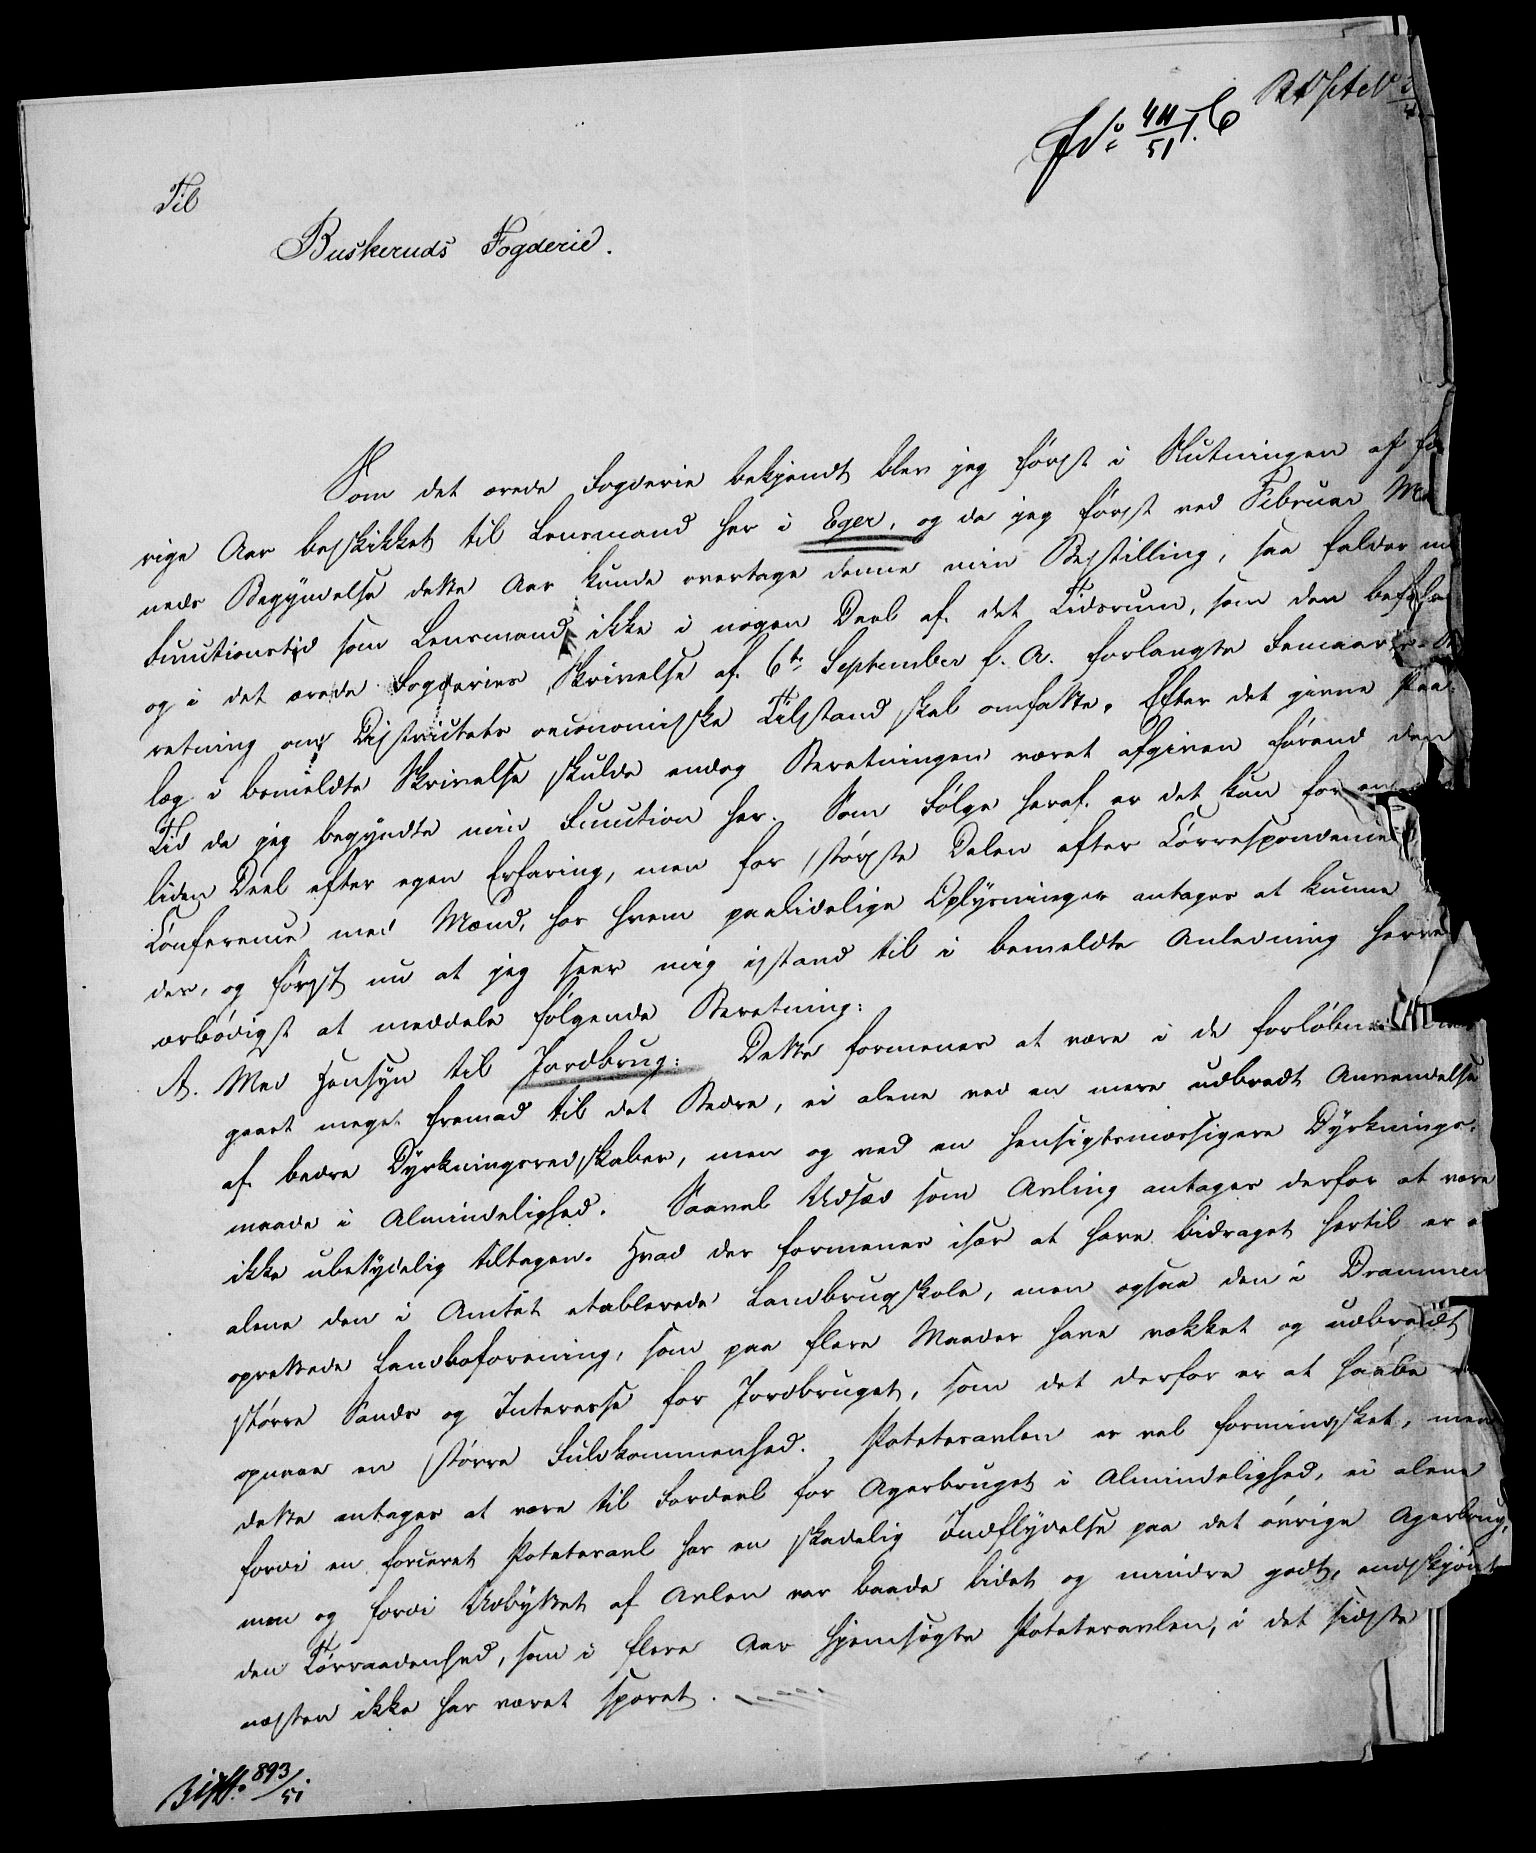 No 411/51. C
Til
Buskeruds Fogderie.
Som det ærede Fogderie bekjendt blev jeg først i Slutningen af fo-
rige Aar beskikket til Lensmand her i Eger, og da jeg først ved Februar Ma-
neds Begyndelse dette Aar kunde overtage denne min Bestilling, saa falder m
Functionstid som Lensmand ikke i nogen Deel af det Tidsrum, som den befalede
og i det ærede Fogderies Skrivelse af 6te September f. A. forlangte Femaars-Be-
retning om Districtets oeconomiske Tilstand skal omfatte. Efter det givne Paa-
læg i bemeldte Skrivelse skulde endog Beretningen været afgiven førend den
Tid da jeg begyndte min Function her. Som Følge heraf er det kun for en
liden Deel efter egen Erfaring, men for største Delen efter Correspondence
Conference med Mænd, hos hvem paalidelige Oplysninger antages at kunne
des, og først nu at jeg seer mig istand til i bemeldte Anledning herved
ærbødigst at meddele følgende Beretning:
A. Med Hensyn til Jordbrug: Dette formenes at være i de forløbne
gaaet meget fremad til det Bedre, ei alene ved en mere udbredt Anvendelse
af bedre Dyrkningsredskaber, men og ved en hensigtsmæssigere Dyrknings-
maade i Almindelighed. Saavel Udsæd som Avling antages derfor at være
ikke ubetydelig tiltagen. Hvad der formenes især at have bidraget hertil er e
alene den i Amtet etablerede Landbrugskole, men ogsaa den i Drammen
oprettede Landboforening, som paa flere Maader have vækket og udbredt
større Sands og Interesse for Jordbruget, som det derfor er at haabe
opnaae en større Fuldkommenhed. Potetesavlen er vel formindsket, men
dette antages at være til Fordeel for Agerbruget i Almindelighed, ei alene
fordi en forceret Potetesavl har en skadelig Indflydelse paa det øvrige Agerbrug,
men og fordi Udbyttet af Avlen var baade lidet og mindre godt, endskjønt
den Tørraadenhed, som i flere Aar hjemsøgte Potetesavlen, i det sidste
næsten ikke har været sporet.
893/51